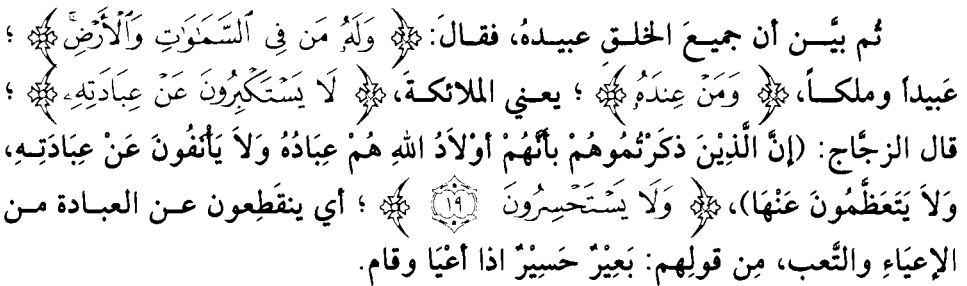 ثم بيَّن أن جميعَ الخلقِ عبيدهُ، فقالَ: ﴿ وَلَهُۥ مَن فِى ٱلسَّمَٰوَٰتِ وَٱلْأَرْضِۚ ﴾ ؛
عَبيداً وملكاً، ﴿ وَمَنْ عِندَهُۥ ﴾ ؛ يعني الملائكةَ، ﴿ لَا يَسْتَكْبِرُونَ عَنْ عِبَادَتِهِۦ ﴾ ؛
قال الزجَّاج: (إنَّ الَّذِيْنَ ذكَرْتُمُوهُمْ بأَنَّهُمْ أوْلاَدُ اللهِ هُمْ عِبَادُهُ وَلاَ يَأْنَفُونَ عَنْ عِبَادَتِهِ،
وَلاَ يَتَعَظَّمُونَ عَنْهَا)، ﴿ وَلَا يَسْتَحْسِرُونَ ١٩ ﴾ ؛ أي ينقَطِعون عن العبادة من
الإعيَاءِ والتَّعب، مِن قولِهم: بَعِيْرٌ حَسِيْرٌ اذا أعْيَا وقام.